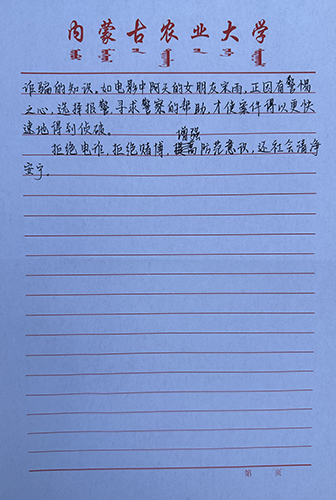 内蒙古农业大学
诈骗的知识。如电影中阿天的女朋友宋雨,正因有警惕
之心,选择报警,寻求警察的帮助,才使案件得以更快
速地得到侦破。
增强
拒绝电诈,拒绝赌博,防范意识,还社会清净
安宁。
第 页